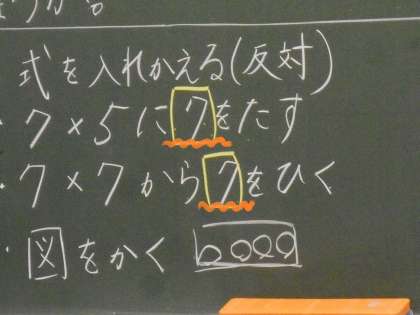 式を入れかえる(反対)
・7×5に7をたす
・7×7から7をひく
・図をかく